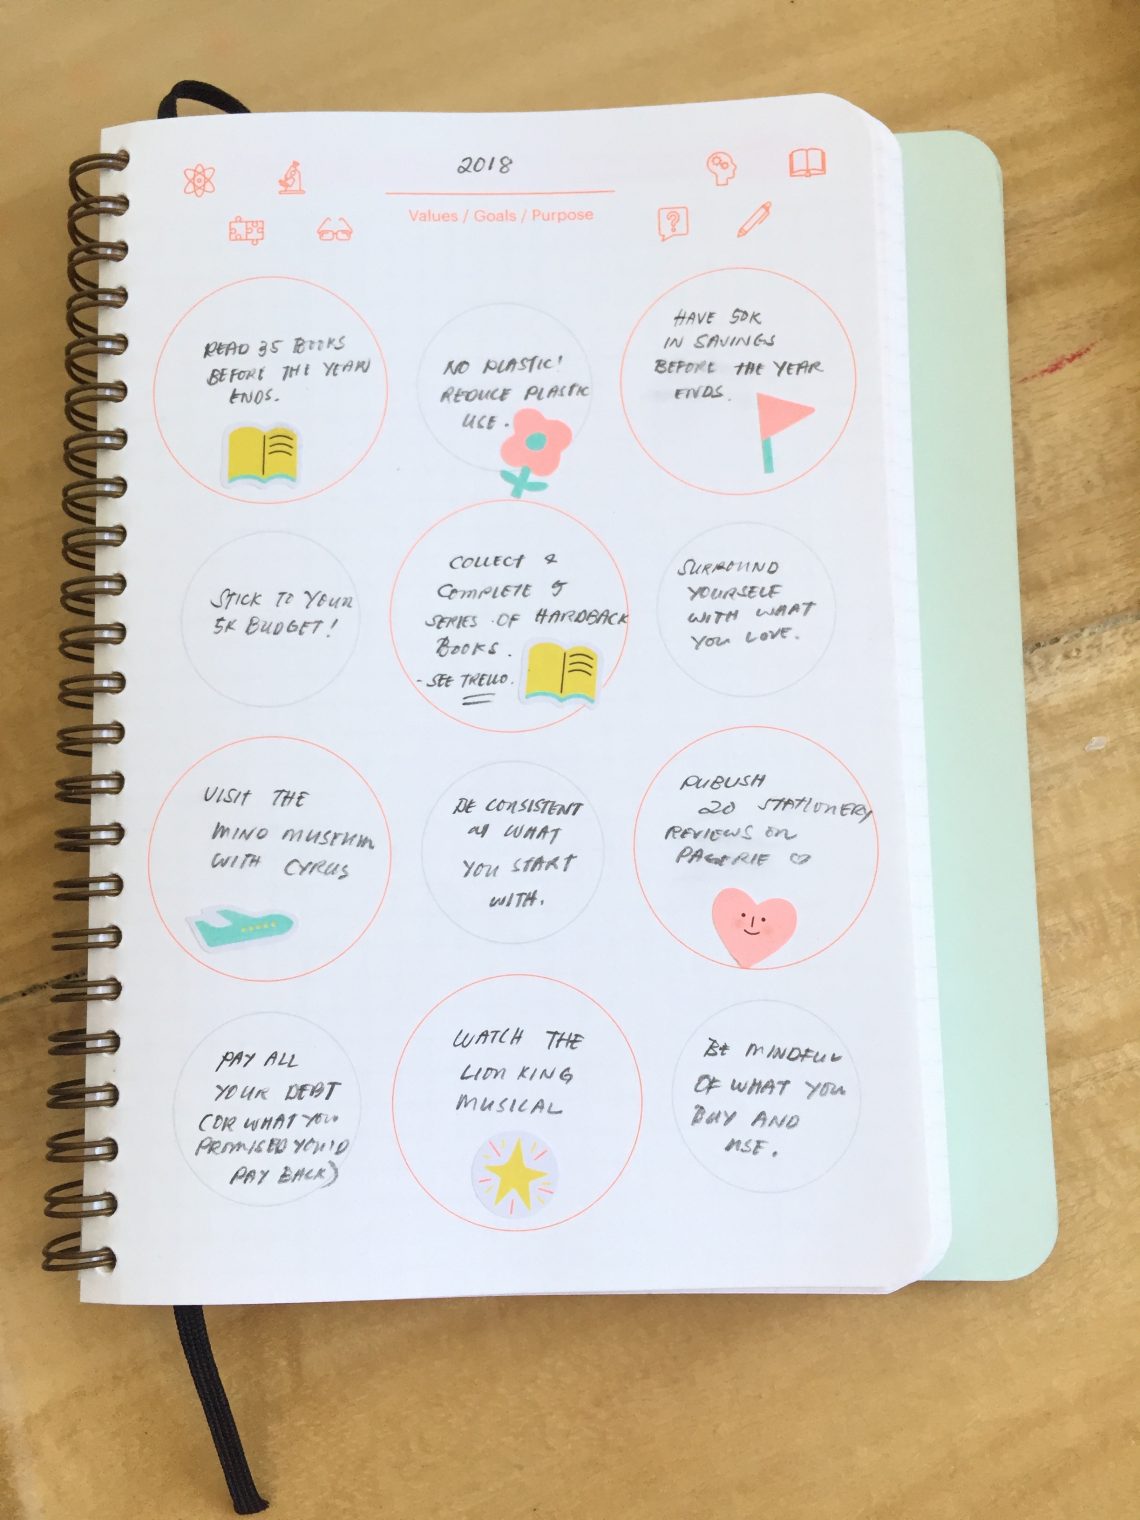 2018
Values / Goals / Purpose
READ 35 BOOKS
BEFORE THE YEAR
ENDS.
NO PLASTIC!
REDUCE PLASTIC
USE.
HAVE 50K
IN SAVINGS
BEFORE THE YEAR
ENDS.
STICK TO YOUR
5K BUDGET!
COLLECT &
COMPLETE 5
SERIES OF HARDBACK
BOOKS.
- SEE TRELLO.
SURROUND
YOURSELF
WITH WHAT
YOU LOVE.
VISIT THE
MIND MUSEUM
WITH CYRUS
BE CONSISTENT
W/ WHAT
YOU START
WITH.
PUBLISH
20 STATIONERY
REVIEWS ON
PAGERIE ♡
PAY ALL
YOUR DEBT
(OR WHAT YOU
PROMISED YOU'D
PAY BACK)
WATCH THE
LION KING
MUSICAL
BE MINDFUL
OF WHAT YOU
BUY AND
USE.